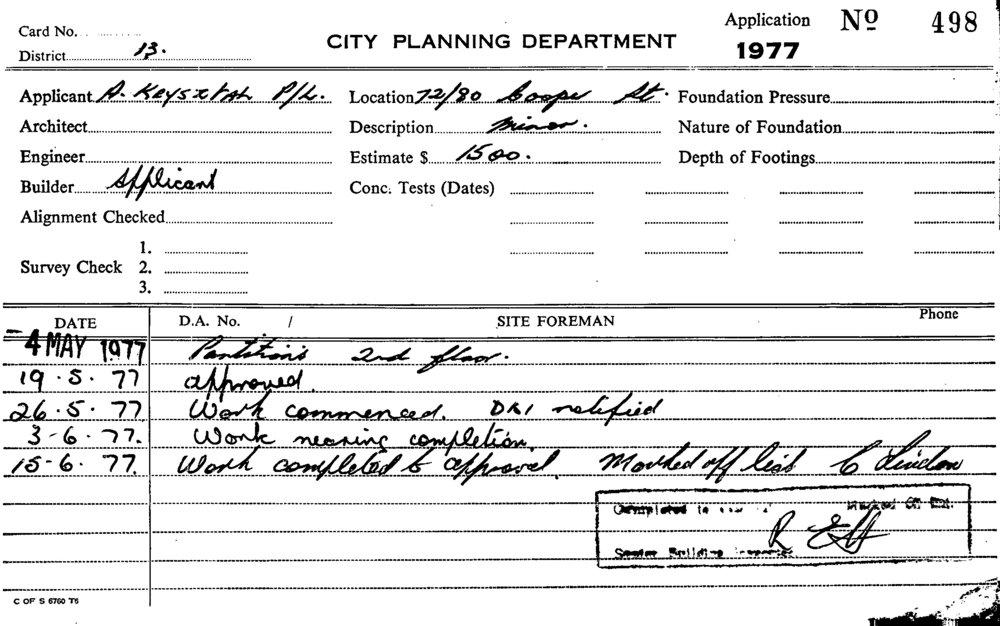 Card No. Application Nº 498
District 13. CITY PLANNING DEPARTMENT 1977
Applicant A. Krysztal P/L. Location 72/80 Cooper St. Foundation Pressure
Architect Description Minor. Nature of Foundation
Engineer Estimate $ 1500. Depth of Footings
Builder Applicant Conc. Tests (Dates)
Alignment Checked
1.
Survey Check 2.
3.
DATE D.A. No. / SITE FOREMAN Phone
-4 MAY 1977 Partitions 2nd floor.
19.5.77 approved.
26.5.77 Work commenced. DRI notified
3-6.77. Work nearing completion.
15-6.77. Work completed to approval. Marked off list
Completed to Marked Off
Senior Building
C OF S 6760 T6